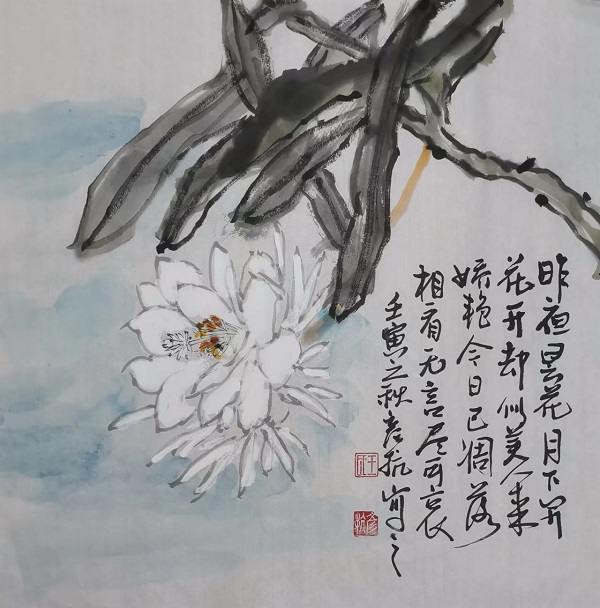 昨夜昙花月下开
花开却似美人来
娇艳今日已凋落
相看无言尽可哀
壬寅之秋彦航写之